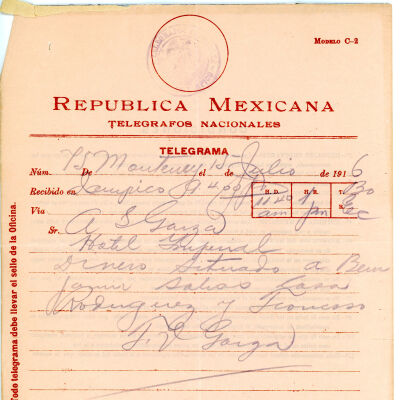 MODELO C-2
REPUBLICA MEXICANA
TELEGRAFOS NACIONALES
TELEGRAMA
Núm. 75 De Monterrey el 15 de Julio de 1916
Recibido en Tampico H.D. H.R. T.
Via 11.40 am 1 pm R.
Sr. A S Garza
Hotel Imperial
Dinero Situado a Ben
jamin Salias Casa
Rodriguez y Troncoso
F. V Garza
Todo telegrama debe llevar el sello de la Oficina.